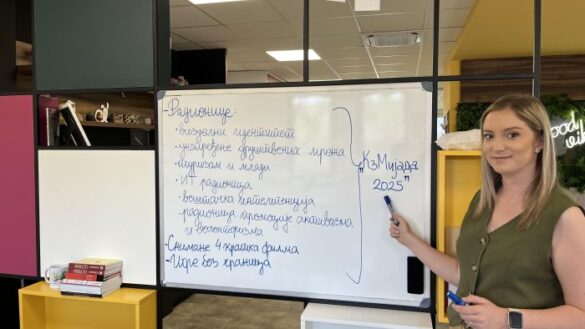 - Радионице:
• визуелни идентитет
• унапређење друштвених мрежа
• туризам и млади
• ИТ радионица
• вештачка интелигенција
• радионица промоције активизма
и волонтеризма
- Снимање 4 кратка филма
- Игре без граница
„КзМијада
2025"
good